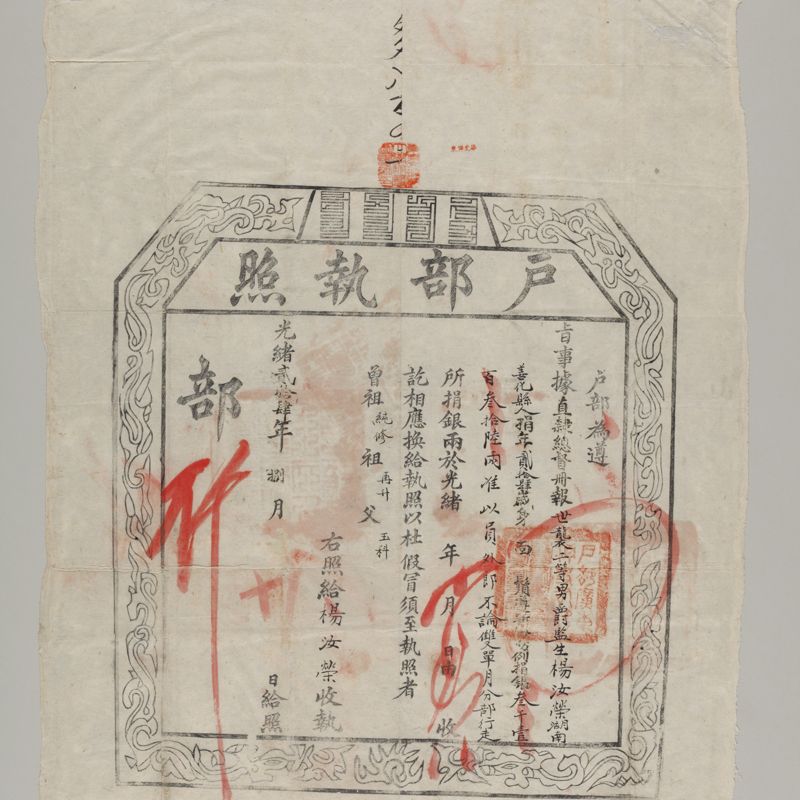 戶部執照
戶部為遵
旨事據直隸總督冊報世襲一等男爵監生楊汝榮湖南
善化縣人捐年貳拾肆歲身 面 鬚 例捐銀叁千壹
百叁拾陸兩准以員外郎不論雙單月分部行走
所捐銀兩於光緒 年 月 日由 收
訖相應換給執照以杜假冒須至執照者
曾祖純修 祖再升 父玉科
右照給楊汝榮收執
光緒貳拾肆年 捌月 日給照
部